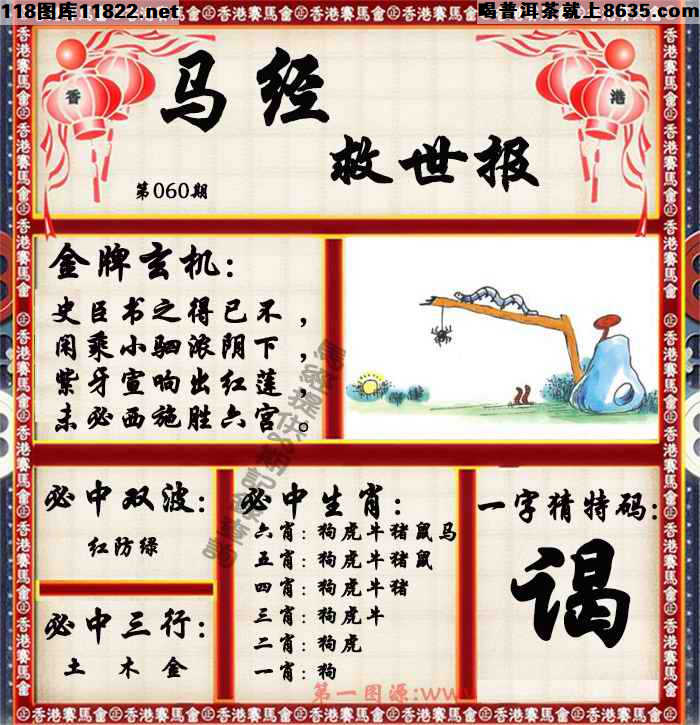 118图库11822.net
喝普洱茶就上8635.com
香
港
马经
救世报
第060期
金牌玄机:
史臣书之得已不，
闲乘小驷浓阴下，
紫牙宣响出红莲，
未必西施胜六宫。
必中双波:
红防绿
必中三行:
土 木 金
必中生肖:
六肖: 狗虎牛猪鼠马
五肖: 狗虎牛猪鼠
四肖: 狗虎牛猪
三肖: 狗虎牛
二肖: 狗虎
一肖: 狗
一字猜特码:
谒
第一图源:www
香港賽馬會